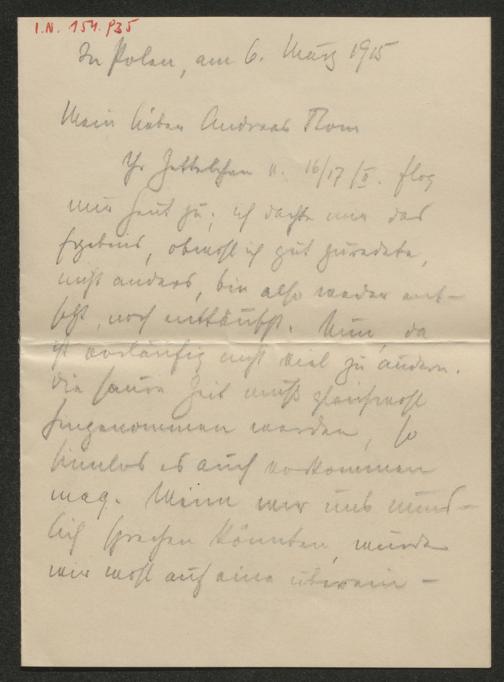 I.N. 154.935
In Polen, am 6. März 1915
Mein lieber Andreas Thom
Ihr Zettelchen v. 16/17/II. flog
mir heut zu; ich dachte mir das
Ergebnis, obwohl ich gut zuredete,
nicht anders, bin also weder ent-
setzt, noch enttäuscht. Nun, da
ist vorläufig nicht viel zu ändern.
Die saure Zeit muß gleichwohl
hingenommen werden, so
sinnlos es auch vorkommen
mag. Wenn wir uns münd-
lich sprechen könnten, würden
wir wohl auf eine überein-